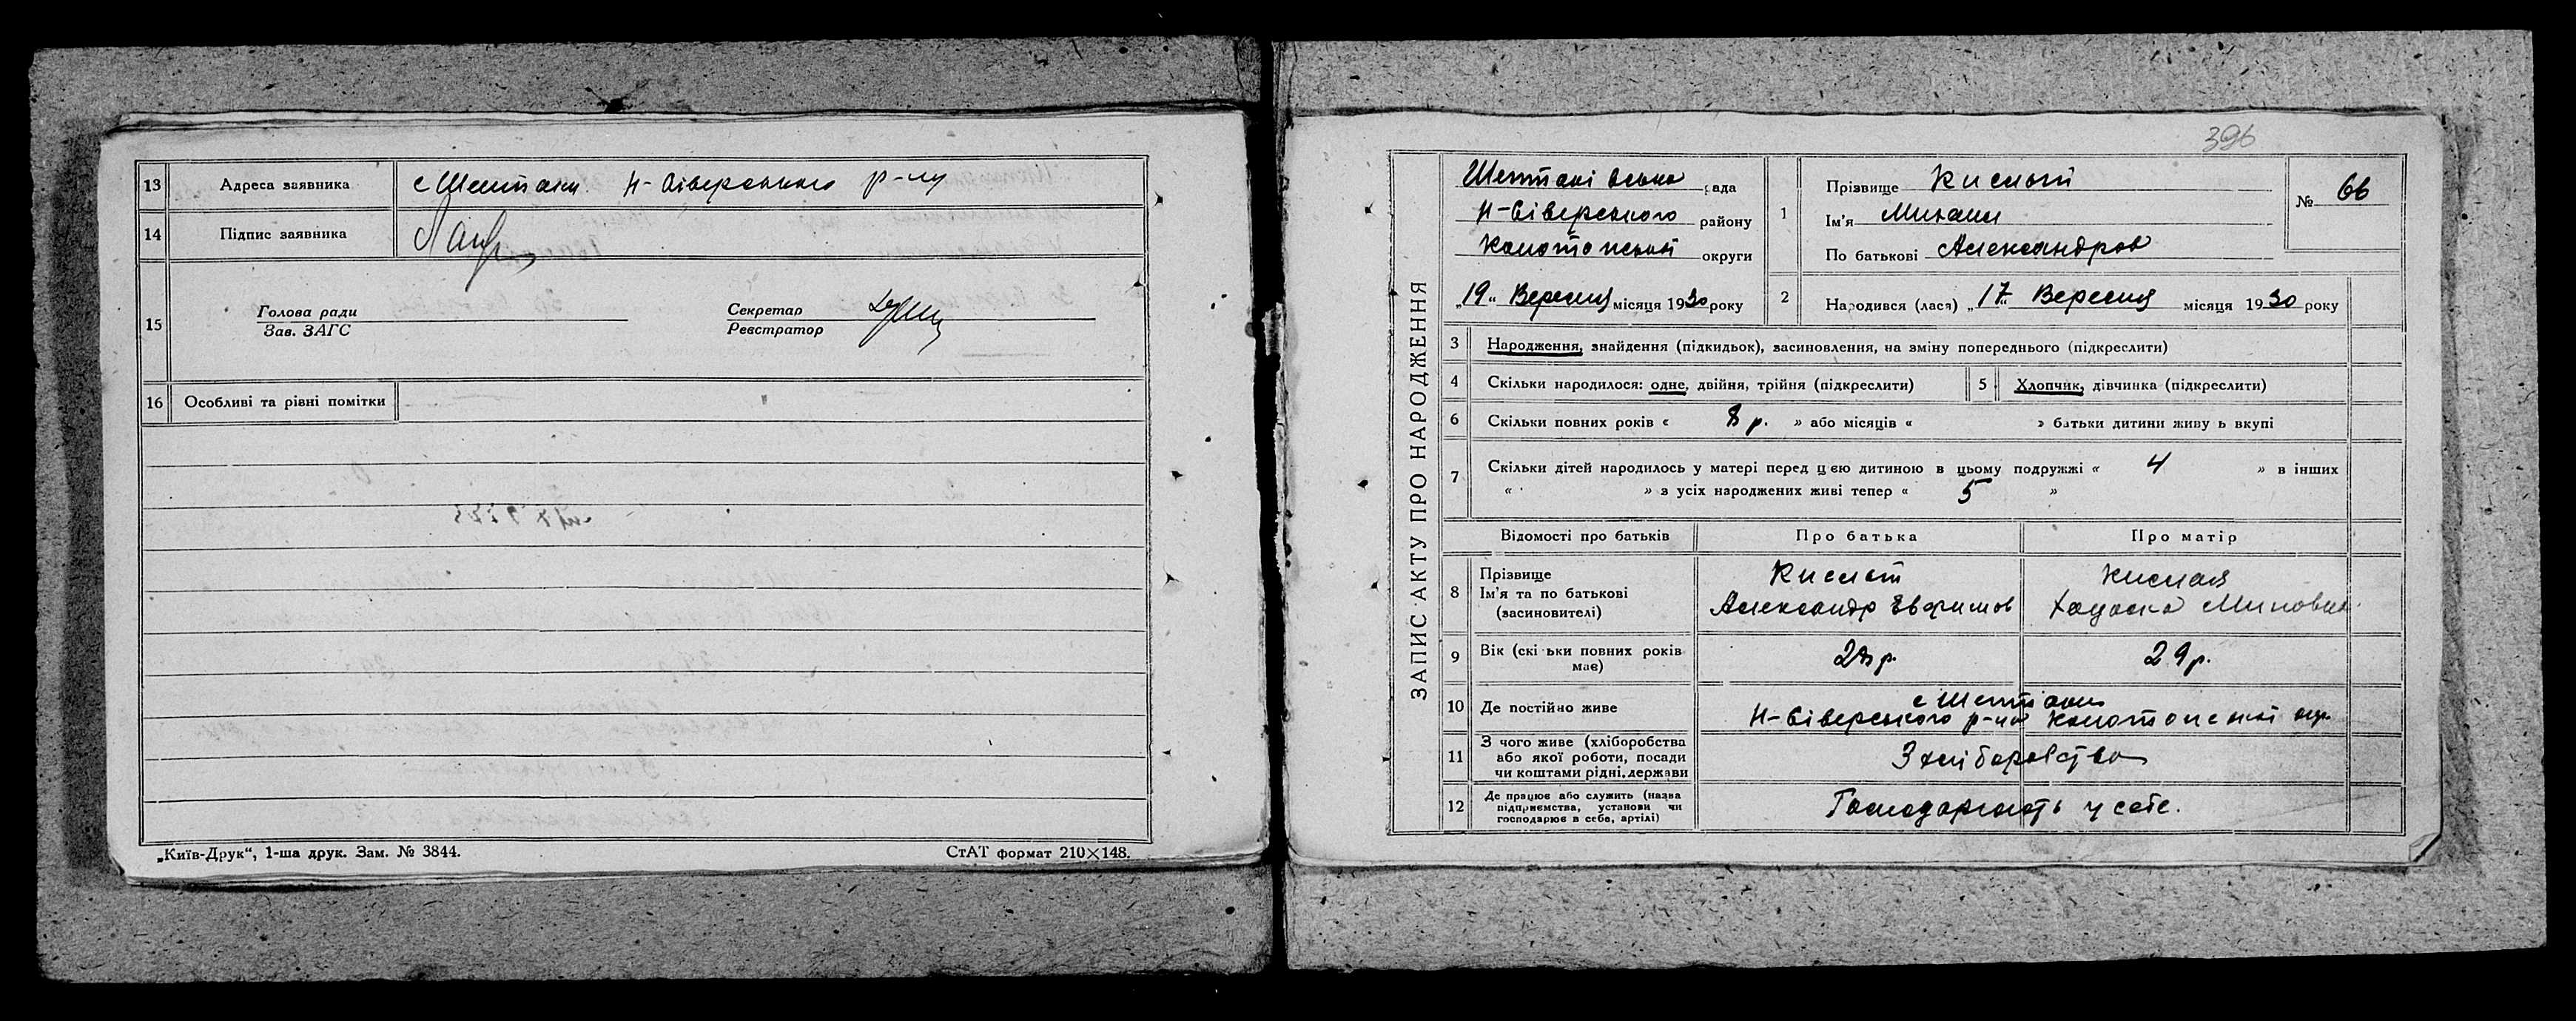 13 Адреса заявника с Шептаки Н-Сіверського р-ну
14 Підпис заявника
15 Голова ради
Зав. ЗАГС
Секретар
Реєстратор
16 Особливі та рівні помітки
„Київ-Друк“, 1-ша друк. Зам. № 3844.
СтАТ формат 210×148.
396
ЗАПИС АКТУ ПРО НАРОДЖЕННЯ
Шептаківська рада
Н-Сіверського району
Конотопської округи
„19“ Вересня місяця 1930 року
1 Прізвище Кислий
Ім'я Михаил
По батькові Александров
№ 66
2 Народився (лася) „17“ Вересня місяця 1930 року
3 Народження, знайдення (підкидьок), засиновлення, на зміну попереднього (підкреслити)
4 Скільки народилося: одне, двійня, трійня (підкреслити)
5 Хлопчик, дівчинка (підкреслити)
6 Скільки повних років « 8 р. » або місяців « » батьки дитини живу ь вкупі
7 Скільки дітей народилось у матері перед цєю дитиною в цьому подружжі « 4 » в інших
« » з усіх народжених живі тепер « 5 »
Відомості про батьків Про батька Про матір
8 Прізвище
Ім'я та по батькові
(засиновителі)
Кислий
Александр Евфимов
Кислая
Миновна
9 Вік (скі ьки повних років
має)
28 р. 29 р.
10 Де постійно живе
с Шептаки
Н-Сіверського р-на Конотопської окр.
11 З чого живе (хліборобства
або якої роботи, посади
чи коштами рідні, держави
З хліборобства
12 Де працює або служить (назва
підприємства, установи чи
господарює в себе, артілі)
Господарюють у себе.